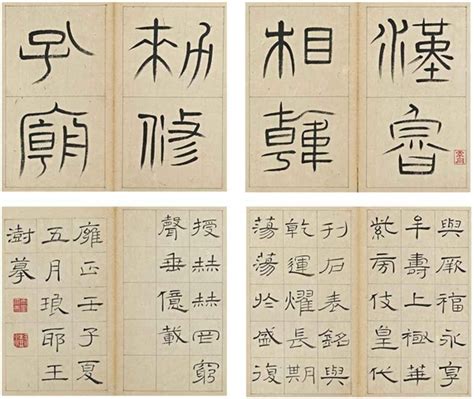 漢魯
相韓
勑修
孔廟
與厥福永享
牟壽上極華
紫旁伎皇代
刊石表銘與
乾運耀長期
蕩蕩於盛復
授赫赫罔窮
聲垂億載
雍正壬子夏
五月琅邪王
澍摹